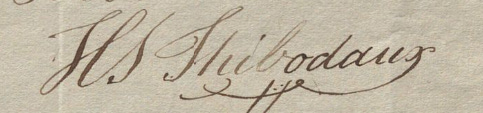 H S Thibodaux